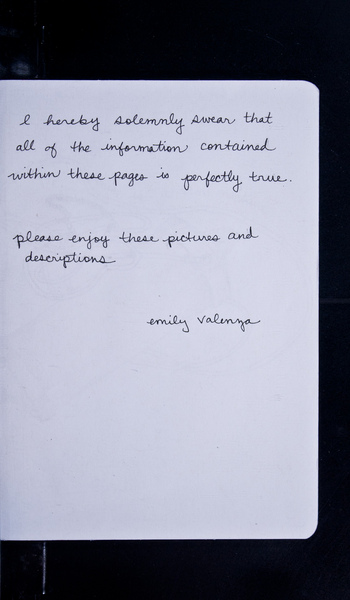 I hereby solemnly swear that
all of the information contained
within these pages is perfectly true.
please enjoy these pictures and
descriptions
emily valenza